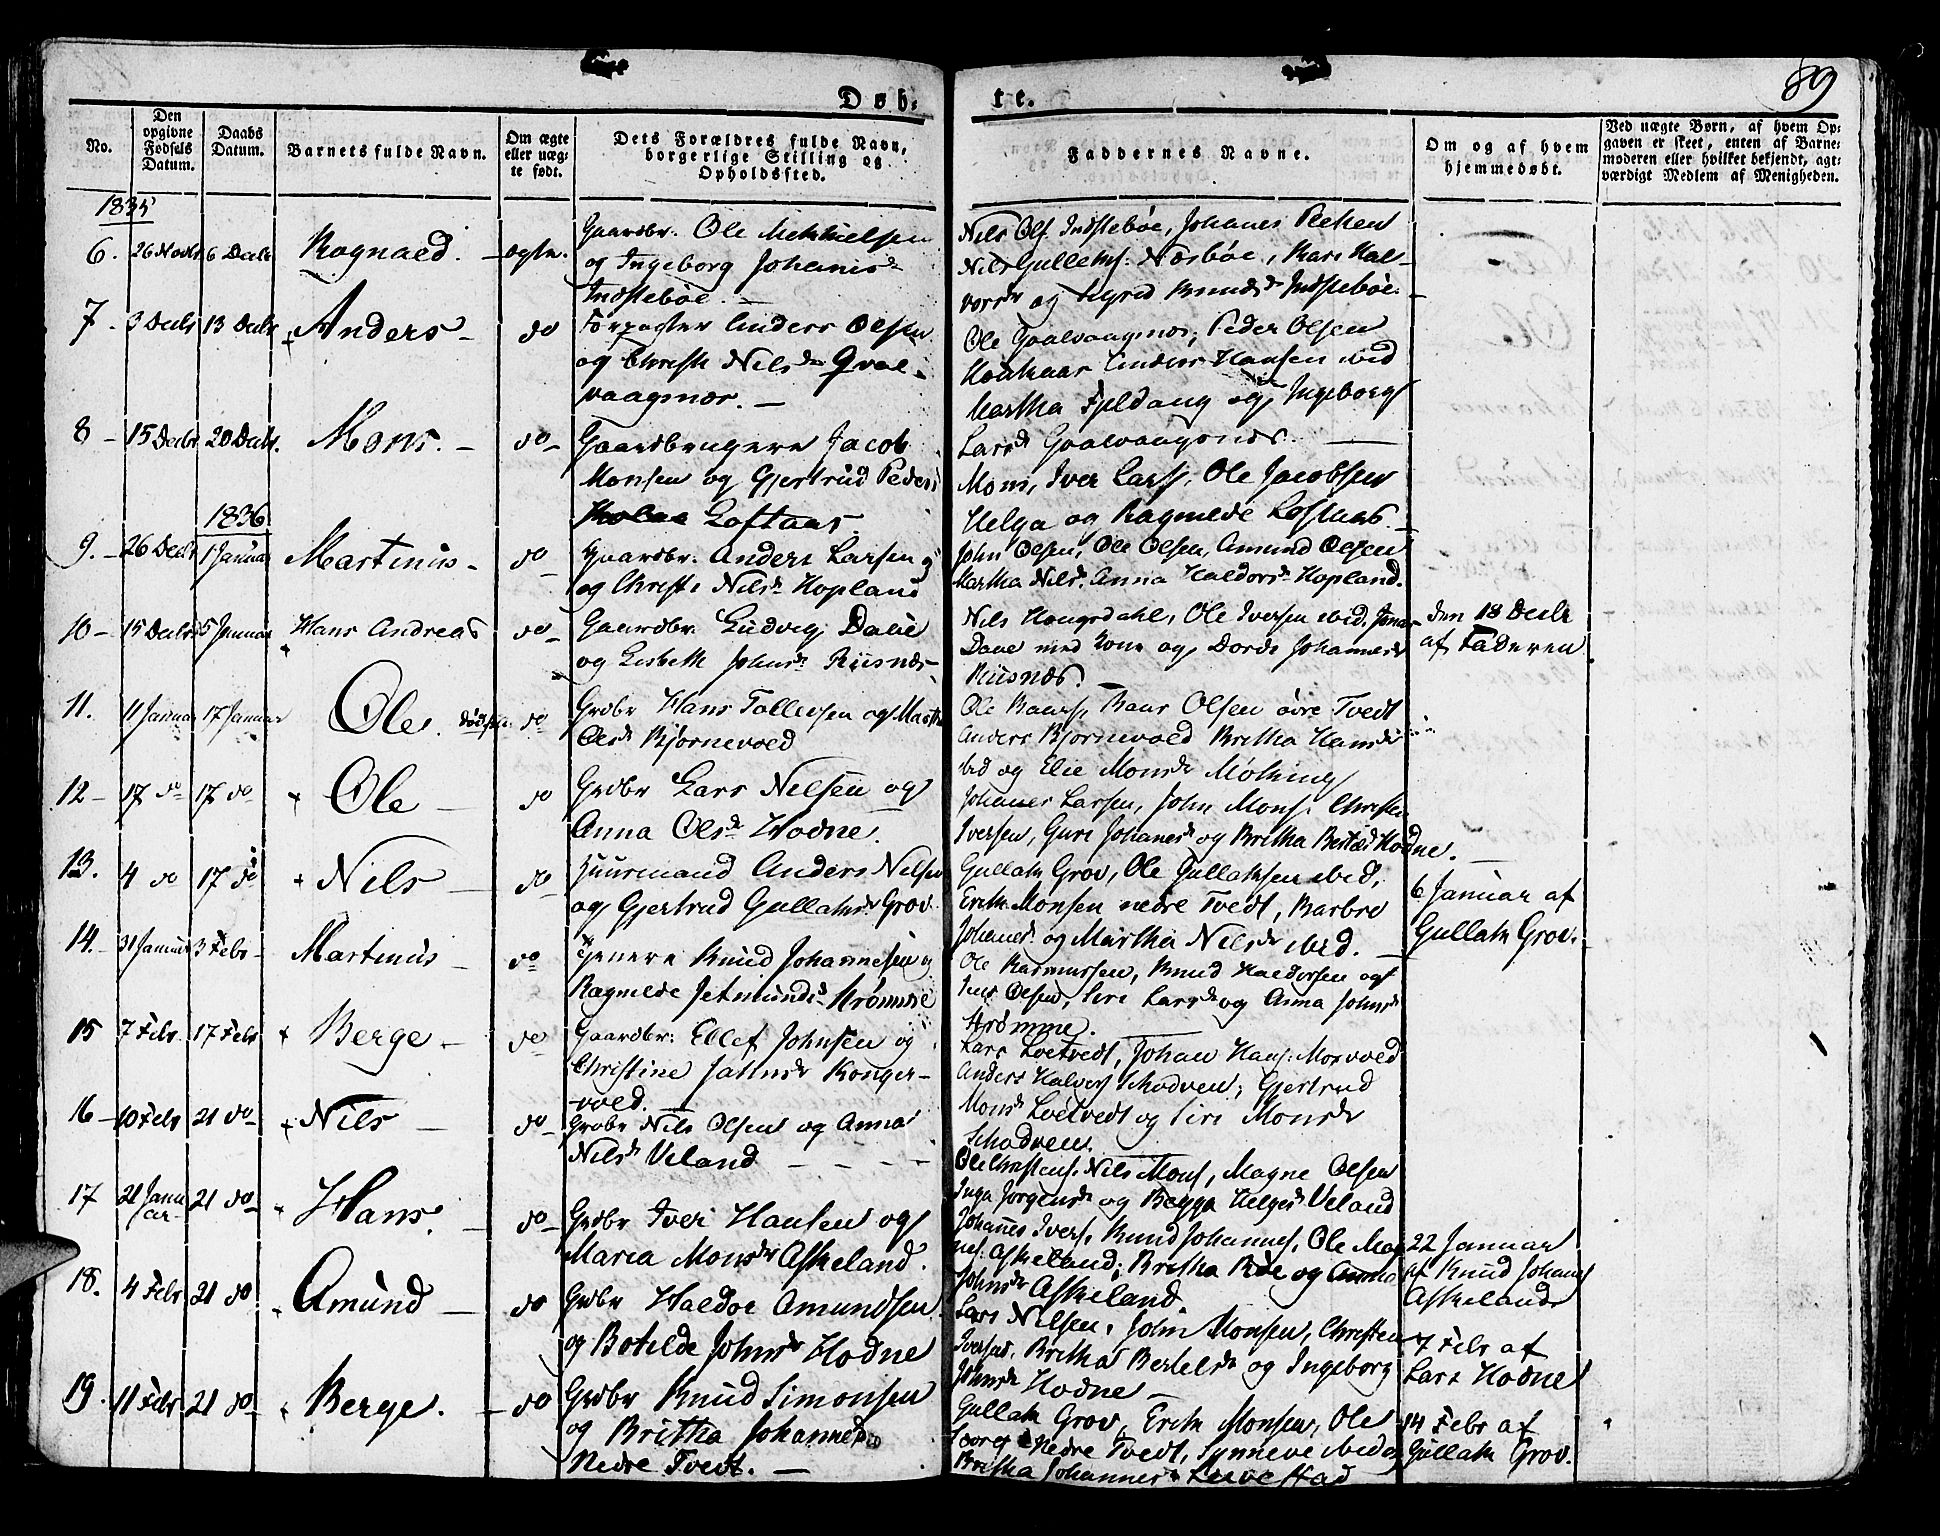 Døb-
te.
89
No.
Den opgivne Fødsels Datum.
Daabs Datum.
Barnets fulde Navn.
Om ægte eller uægte født.
Dets Forældres fulde Navn, borgerlige Stilling og Opholdssted.
Faddernes Navne.
Om og af hvem hjemmedøbt.
Ved uægte Børn, af hvem Opgaven er skeet, enten af Barnemoderen eller hvilket bekjendt, agtværdigt Medlem af Menigheden.
1835
6. 26 Novbr 6 Decbr Ragnaed. ægte.
Gaardbr. Ole Mikkielsen
og Ingeborg Johanisd
Indstebøe.
Nils Ols Indstebøe, Johanes
Nils Gulleks. Næsbøe, Kari Hal-
vorsd og Sygrid Knudsd Indstebøe.
7. 3 Decbr 13 Decbr Anders do
Forpagter Anders Olsen
og Christi Nilsd Qval-
vaagnæs.
Ole Qvalvaagnæs, Peder Olsen
Anders Hansen ibid
Martha og Ingeborg
Larsd Qvalvaagnæs.
8 15 Decbr 20 Decbr. Mons. do
Gaardbrugere Jacob
Monsen og Gjertrud Peders
Loftaas
Mons, Iver Larss, Ole Jacobsen
Helga og Ragnilde Loftaas.
1836
9. 26 Decbr 1 Januar Martinus do
Gaardbr. Anders Larsen
og Christi Nilsd Hopland
John Olsen, Ole Olsen, Amund Olsen
Martha Nilsd. Anna Haldorsd Hopland.
10 15 Decbr 5 Januar Hans Andreas do
Gaardbr. Ludvig Daae
og Lisbeth Johnsd Riisnæs
Nils Hougsdahl, Ole Iversen ibid. Jonas
Daae med Kone og Dorde Johannesd
Riisnæs.
den 18 Decbr
af Faderen
11. 11 Januar 17 Januar Ole. do
Grdbr Hans Tollevsen og Martha
Olsd Bjørnevold
Ole Baars, Baar Olsen øvre Tvedt
Anders Bjørnevold Britha Hansd
ibd og Elie Monsd Møking
12 17 do 17 do Ole do
Grdbr Lars Nilsen og
Anna Olsd Hodne.
Johanes Larsen, John Mons. Christen
Iversen, Guri Johanesd og Britha Hodne.
13. 4 do 17 do Nils do
Huusmand Anders Nilsen
og Gjertrud Gullaksd Grov
Gullak Grov, Ole Gullaksen ibid,
Erik Monsen nedre Tvedt, Barbro
Johanesd og Martha Nilsd ibid.
6 Januar af
Gullak Grov.
14. 31 Januar 3 Febr Martinus do
Tjenere Knud Johannesen
Ragnilde Jetmundsd Strømme
Ole Rasmussen, Knud Haldorsen og
Jens Olsen, Siri Larsd og Anna Johnsd
Strømme.
15 7 Febr. 17 Febr Berge do
Gaardbr: Ellef Johnsen og
Christine Konger-
vold.
Lars Lvetvedt, Johan Hans. Morvold
Anders Halvors Skodven, Gjertrud
Monsd Lvetvedt og Siri Monsd
Skodven.
16 10 Febr 21 do Nils do
Grdbr Nils Olsen og Anna
Nilsd Veland
Ole Christens. Nils Mons, Magne Olsen
Inga Jørgensd og Bagga Helgesd Veland
17 21 Januar 21 do Hans. do
Grdbr Iver Hansen og
Maria Monsd Askeland.
Johanes Ivers, Knud Johannes, Ole Mag-
nes. Askeland, Britha og Anna
Johnsd Askeland.
22 Januar
af Knud Johanes
Askeland
18. 4 Febr 21 do Amund do
Grdbr Haldor Amundsen
og Botilde Johnsd Hodne
Lars Nilsen, John Monsen, Christen
Iversen, Britha Bertelsd og Ingeborg
Johnsd Hodne
7 Febr af
Lars Hodne
19. 11 Febr 21 do Berge. do
Grdbr Knud Simonsen
og Britha Johannesd
Nedre Tvedt.
Gullak Grov, Erik Monsen, Ole
nedre Tvedt, Synneve ibid og
Britha Johannesd
14 Febr af
Gullak Grov.